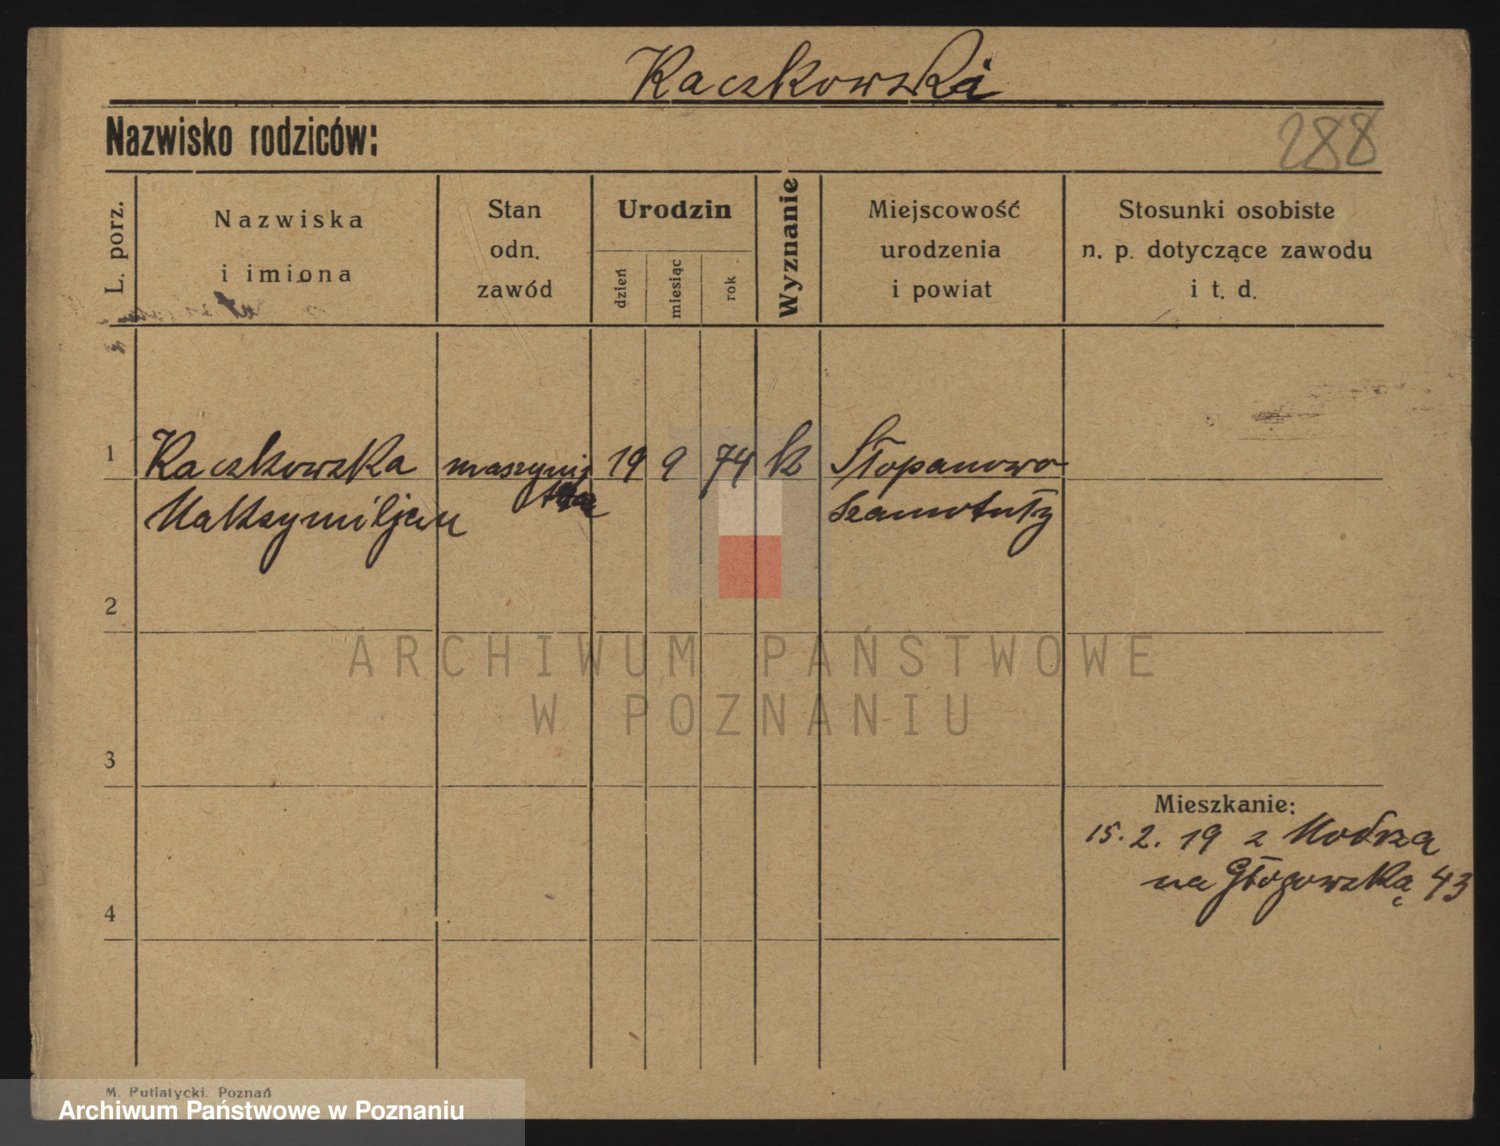 Kaczkowski
Nazwisko rodziców:
288
L. porz.
Nazwiska
i imiona
Stan
odn.
zawód
Urodzin
dzień
miesiąc
rok
Wyznanie
Miejscowość
urodzenia
i powiat
Stosunki osobiste
n. p. dotyczące zawodu
i t. d.
1 Kaczkowska maszynij 19 9 74 k Stopanowo
Maksymiljan Szamotuły
2
3
4
Mieszkanie:
15. 2. 19 z Modrza
na Głogowską 43
ARCHIWUM PAŃSTWOWE
W POZNANIU
M. Putiatycki. Poznań
Archiwum Państwowe w Poznaniu